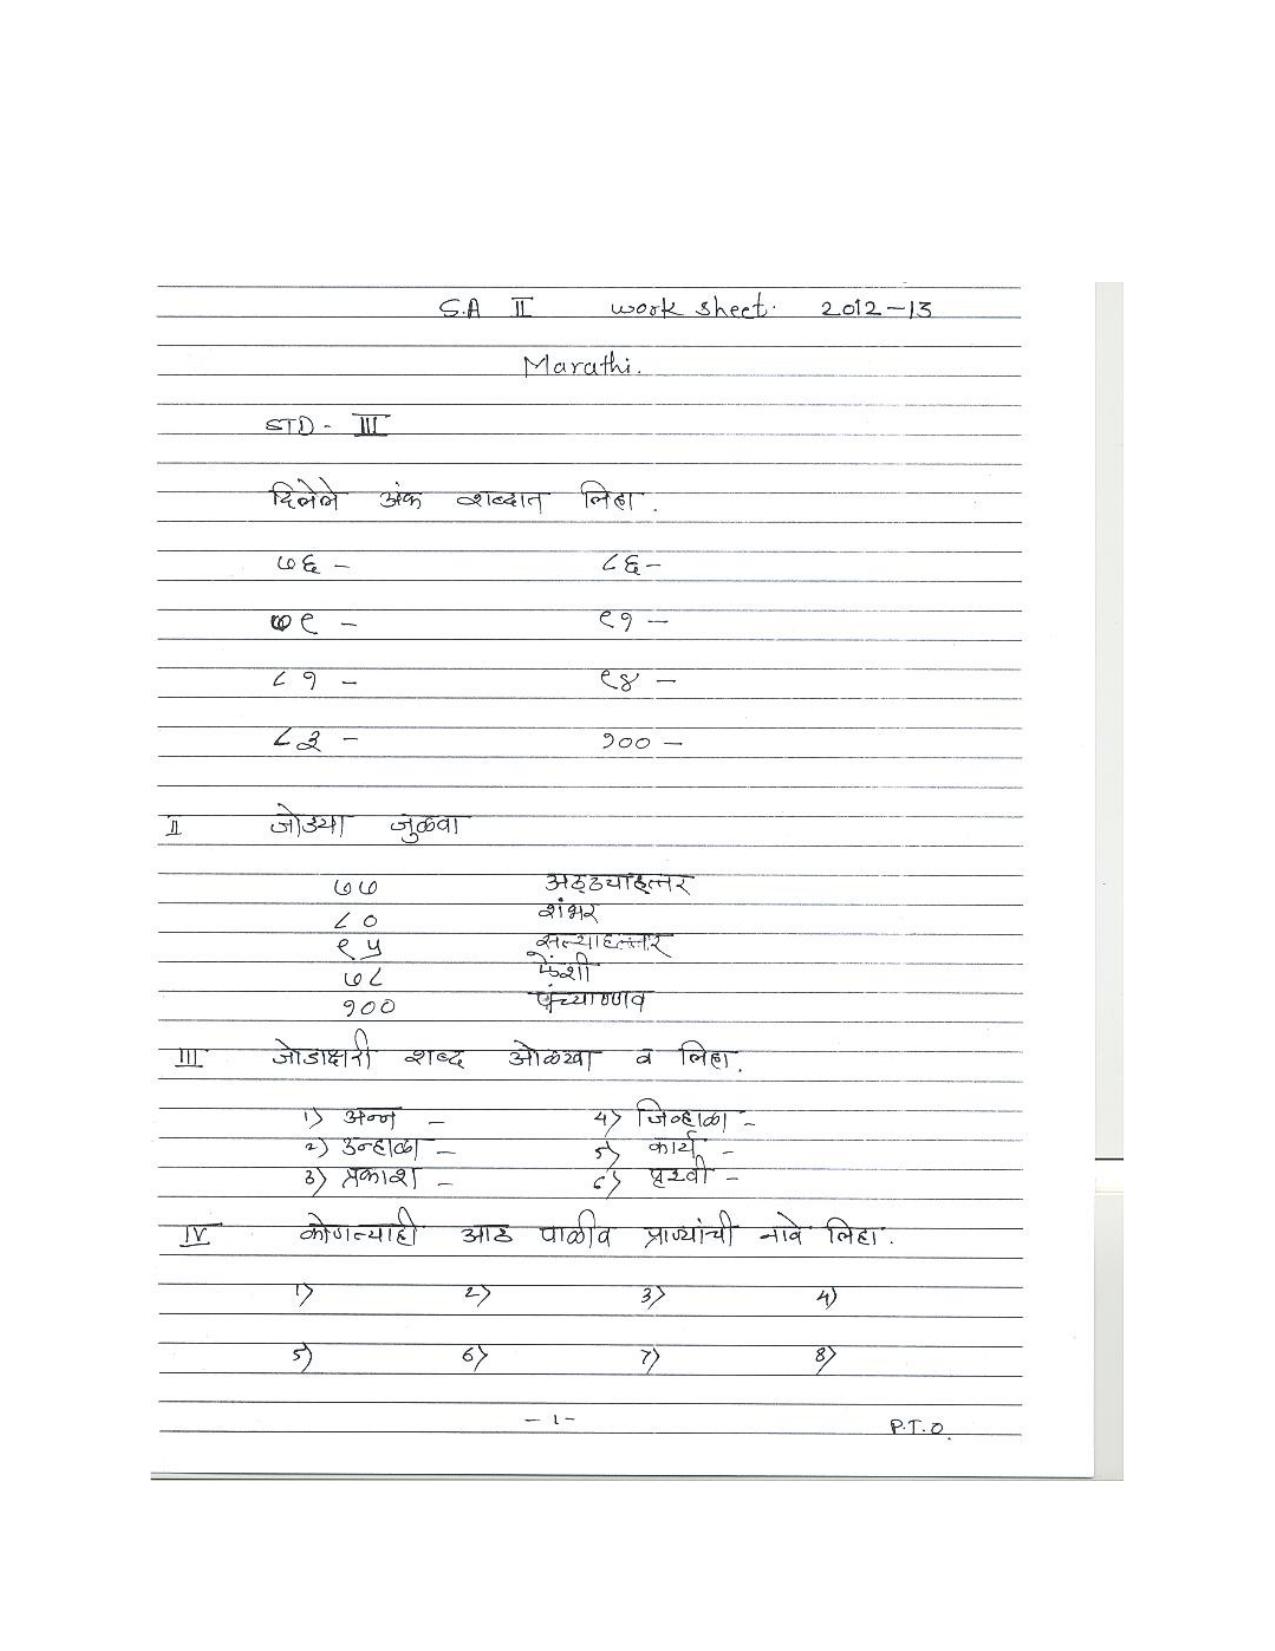 S.A II work sheet. 2012-13
Marathi.
STD - III
दिलेले अंक शब्दात लिहा.
७६ - ८६-
७९ - ९१ -
८१ - ९४ -
८३ - १०० -
II जोड्या जुळवा
७७ अठ्ठ्याहत्तर
८० शंभर
९५ सत्याहत्तर
७८ ऐंशी
१०० पंच्याण्णव
III जोडाक्षरी शब्द ओळखा व लिहा.
1) अन्न - 4) जिव्हाळा -
2) उन्हाळा - 5) कार्य -
3) प्रकाश - 6) पृथ्वी -
IV कोणत्याही आठ पाळीव प्राण्यांची नावे लिहा.
1) 2) 3) 4)
5) 6) 7) 8)
- 1 -
P.T.O.